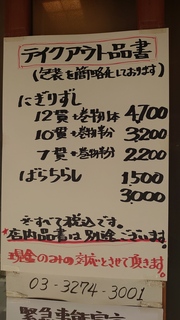 テイクアウト品書
(包装を簡略化しております)
にぎりずし
12貫+巻物1本 4,700
10貫+巻物半分 3,200
7貫+巻物半分 2,200
ばらちらし 1,500
3,000
※すべて税込です。
*店内品書は別途ございます。
現金のみの対応とさせて頂きます。
03-3274-3001
緊急事態宣言